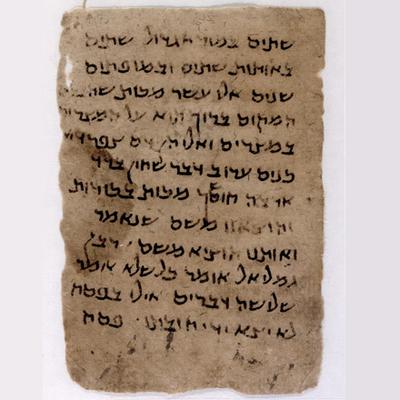 שתים במורא גדול שתים
באותות שתים ובמופתים
שנים אלו עשר מכות שהביא
המקום ברוך הוא על המצריים
במצרים ואלו הן דם צפרדע
כנים ערוב דבר שחין ברד
ארבה חושך מכות בכורות
משם שנאמר
ואותנו הוציא משם רבן
גמליאל אומר כל שלא אמר
שלושה דברים אילו בפסח
לא יצא ידי חובתו פסח